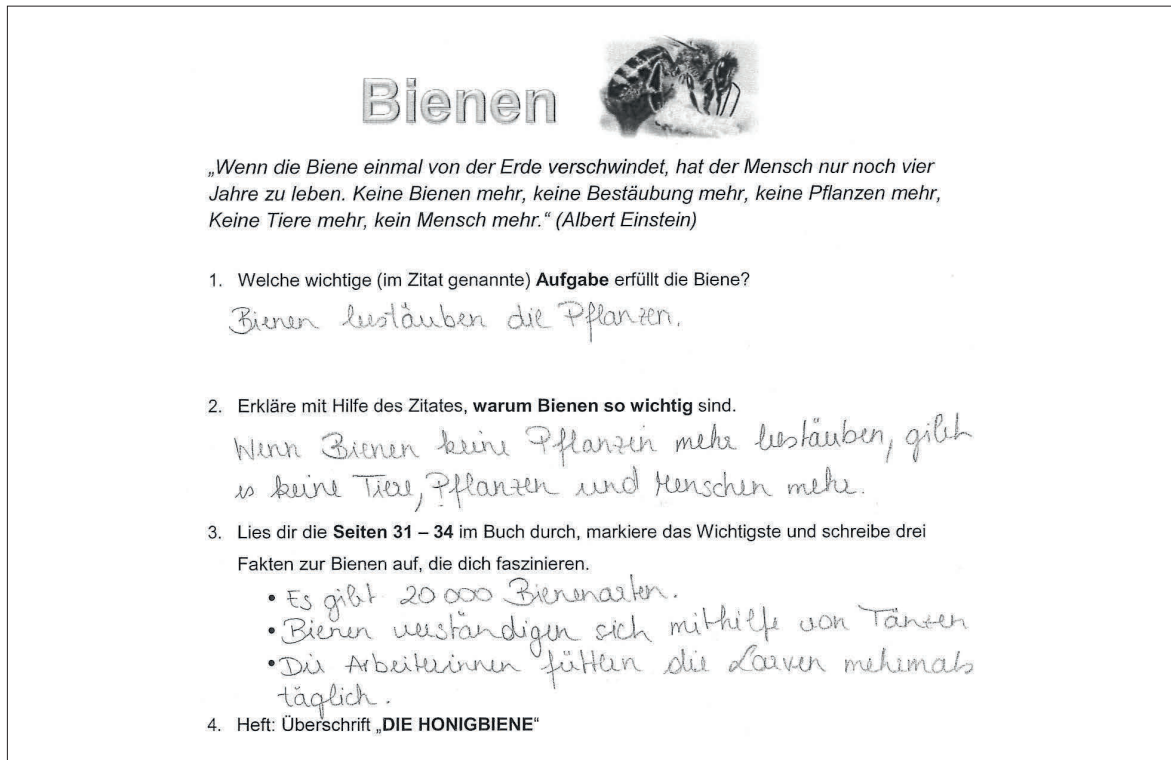 Bienen
„Wenn die Biene einmal von der Erde verschwindet, hat der Mensch nur noch vier
Jahre zu leben. Keine Bienen mehr, keine Bestäubung mehr, keine Pflanzen mehr,
Keine Tiere mehr, kein Mensch mehr.“ (Albert Einstein)
1. Welche wichtige (im Zitat genannte) Aufgabe erfüllt die Biene?
Bienen bestäuben die Pflanzen.
2. Erkläre mit Hilfe des Zitates, warum Bienen so wichtig sind.
Wenn Bienen keine Pflanzen mehr bestäuben, gibt
es keine Tiere, Pflanzen und Menschen mehr.
3. Lies dir die Seiten 31 – 34 im Buch durch, markiere das Wichtigste und schreibe drei
Fakten zur Bienen auf, die dich faszinieren.
• Es gibt 20 000 Bienenarten.
• Bienen verständigen sich mithilfe von Tänzen
• Die Arbeiterinnen füttern die Larven mehrmals
täglich.
4. Heft: Überschrift „DIE HONIGBIENE“